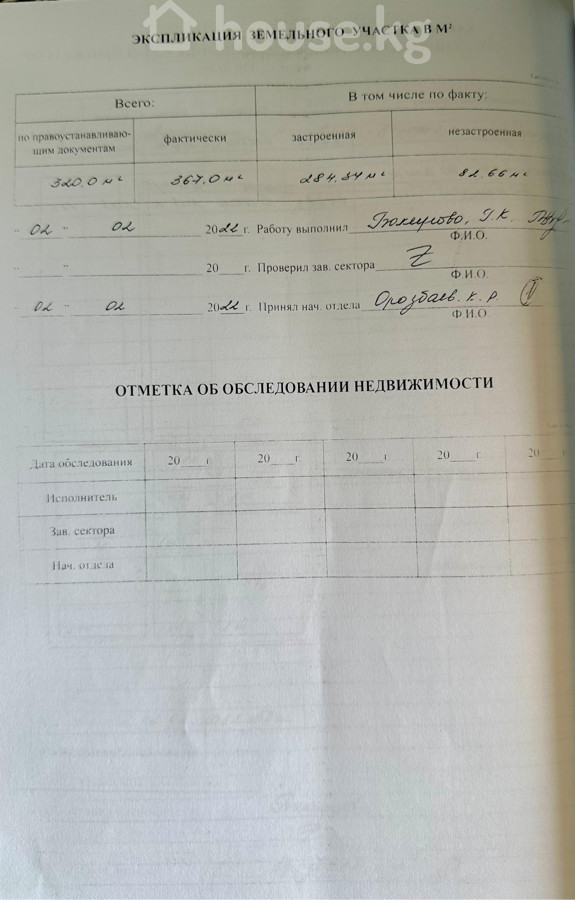 house.kg
ЭКСПЛИКАЦИЯ ЗЕМЕЛЬНОГО УЧАСТКА В М²
Всего:
В том числе по факту:
по правоустанавливаю-
щим документам
фактически
застроенная
незастроенная
320,0 м²
367,0 м²
284,34 м²
82,66 м²
" 02 " 02 2022 г. Работу выполнил Г.К.
Ф.И.О.
" " 20 г. Проверил зав. сектора
Ф.И.О.
" 02 " 02 2022 г. Принял нач. отдела Орозбаев. К. Р.
Ф.И.О
ОТМЕТКА ОБ ОБСЛЕДОВАНИИ НЕДВИЖИМОСТИ
Дата обследования 20 г. 20 г. 20 г. 20 г. 20
Исполнитель
Зав. сектора
Нач. отдела